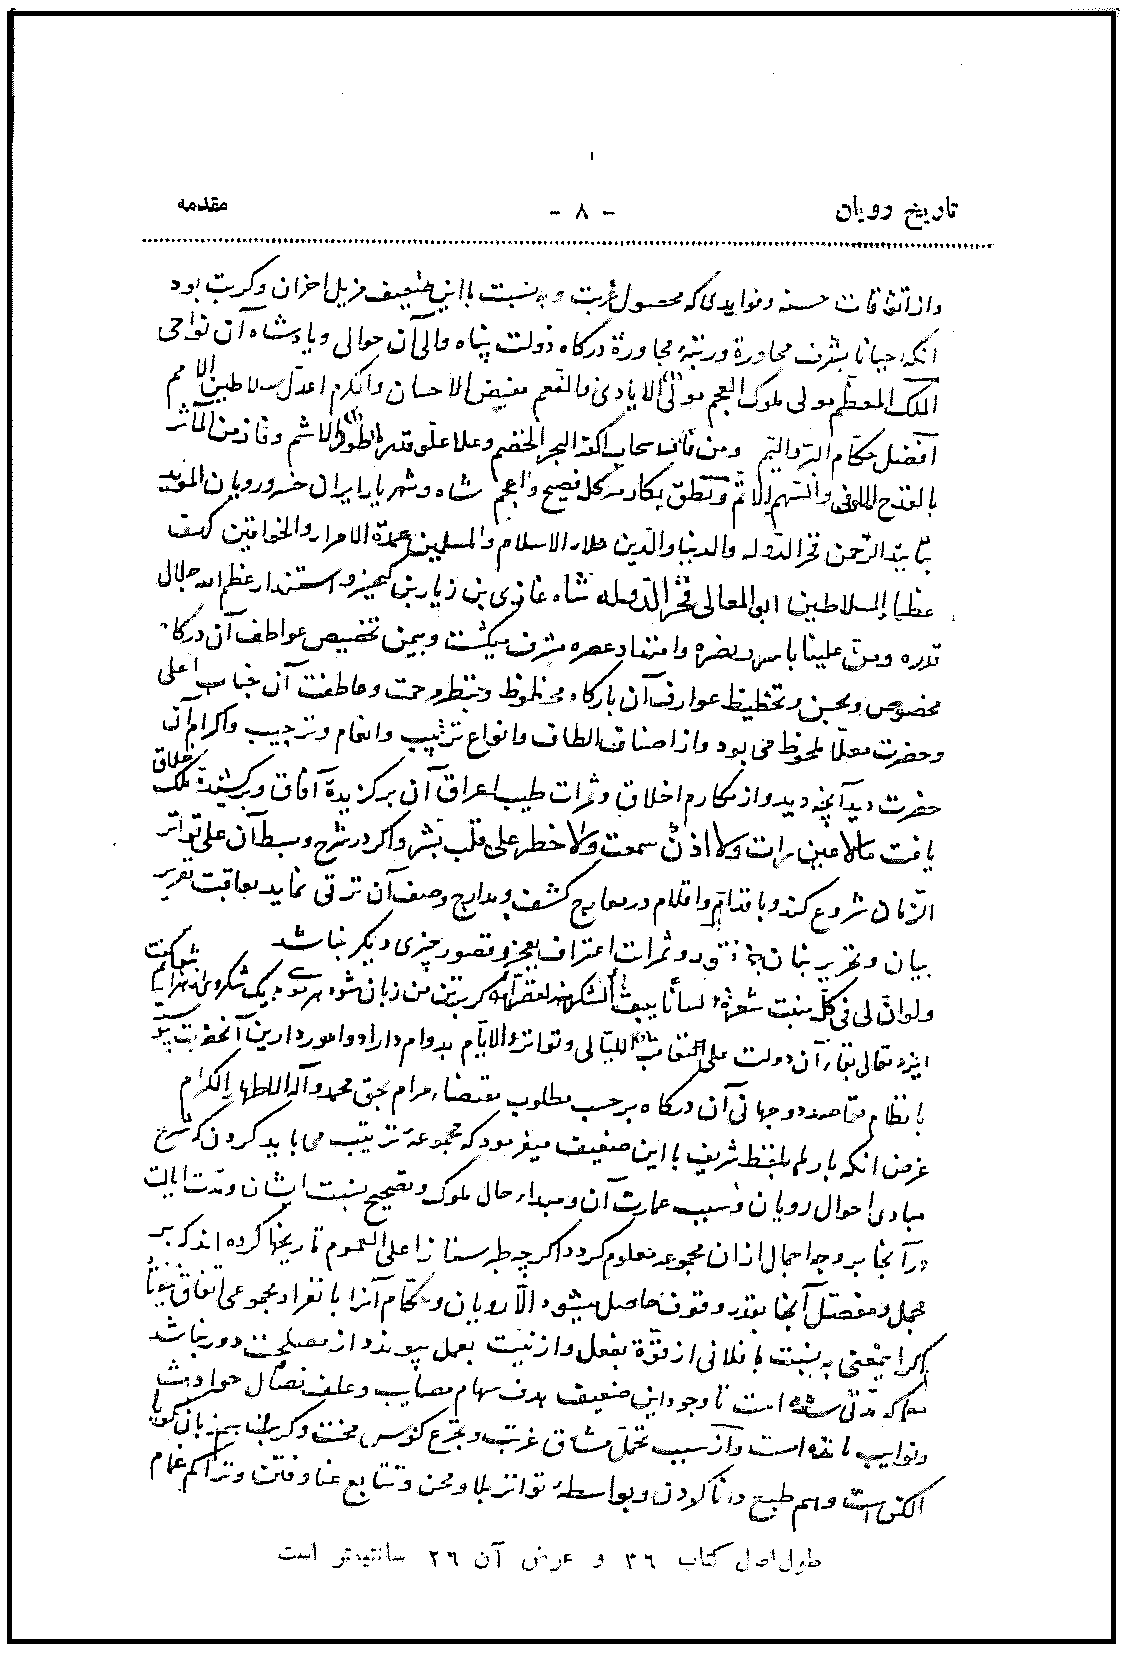 تاریخ رویان - ۸ - مقدمه
واز اتفاقات حسنه وفوایدی که محصول غربت و به نسبت بااین ضعیف مزیل احزان وکربت بود
آنکه احیانا بشرف محاورة ورتبهٔ مجاورة درکاه دولت پناه والی آن حوالی وپادشاه آن نواحی
الملک المعظم مولی ملوک العجم مولی الایادی والنعم مفیض الاحسان والکرم اعدل سلاطین الامم
افضل حکام البر والیم ومن فاق سحاب اکفه البحر الخضم وعلا علو قدره الاشم وفاز من المآثر
بالقدح ونطق بمکارمه کل فصیح واعجم شاه وشهریار ایران خسرو رویان المؤید
بتأیید الرحمن فخر الدوله والدنیا والدین علاء الاسلام والمسلمین عمدة الامراء والخواقین کهف
عظماء السلاطین ابی المعالی فخر الدوله شاه غازی بن زیار بن کیخسرو استندار عظم الله جلال
قدره ومن علینا نصره وامتداد عصره مشرف میکشت وبیمن تخصیص عواطف آن درکاه
مخصوص وبحسن وتحظیظ عوارف آن بارکاه محظوظ وبنظر رحمت وعاطفت آن جناب اعلی
وحضرت معلّا ملحوظ می بود واز اصناف الطاف وانواع ترتیب وانعام وترحیب واکرام آن
حضرت دید آنچه دید واز مکارم اخلاق وثمرات طیب اعراق آن برکزیدهٔ آفاق وبرکشیدهٔ ملک خلاق
یافت مالا عین رات ولا اذن سمعت ولا خطر علی قلب بشر واکر در شرح وبسط آن علی تواتر
الزمان شروع کند وباقدام واقلام در معارج کشف ومدارج وصف آن ترقی نماید بعاقبت تقریر
بیان وتحریر بنان وثمرات اعتراف بعجز وقصور چیزی دیکر نباشد
ولو انّ لی فی کلّ منبت شعرة لسانا یبث الشکر کر بر تن من زبان شود هر موئی یک شکر وی از هزار
ایزد تعالی بقاء آن دولت علی اللیالی وتواتر الایام بدوام داراد وامور دارین آنحضرت
بانتظام مقاصد دوجهانی آن درکاه برحسب مطلوب مقتضاء مرام بحق محمد وآله الکرام
غرض انکه بارها بلفظ شریف بااین ضعیف میفرمود که مجموعهٔ ترتیب می باید کردن که شرح
مبادی احوال رویان وسبب عمارت آن ومبداء حال ملوک وتصحیح نسبت ایشان ومدت ایالت
در آنجا بروجه اجمال ازان مجموعه معلوم کردد اکرچه طبرستانرا علی العموم تاریخها کرده اند که بر
مجمل ومفصل آنجا بقدر وقوف حاصل میشود الا رویان وحکام آنرا بانفراد مجموعی اتفاق نیوفتاد
اکر این معنی به نسبت با فلانی از قوّة بفعل واز نیت بعمل پیوندد از مصلحت دور نباشد
معما که مدتی شده است تا وجود این ضعیف هدف سهام مصایب وعلف نصال حوادث
ونوایب مانده است واز سبب تحمل مشاق غربت وتجرع کؤس محنت وکربت هم زبان کویا
الکن است وهم طبع دانا کودن وبواسطهٔ تواتر بلا ومحن وتتابع عنا وفتن وتراکم غمام
طول اصل کتاب ۳۶ و عرض آن ۲۶ سانتیمتر است